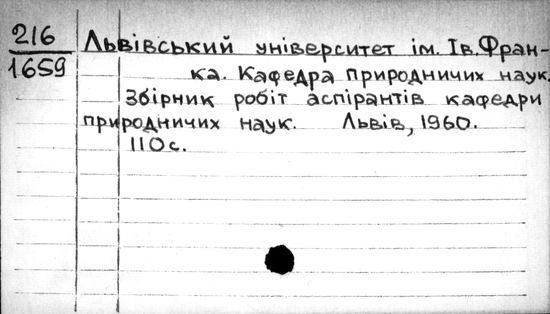 216
1659
Львівський університет ім. Ів. Фран-
ка. Кафедра природничих наук.
Збірник робіт аспірантів кафедри
природничих наук. Львів, 1960.
110 с.